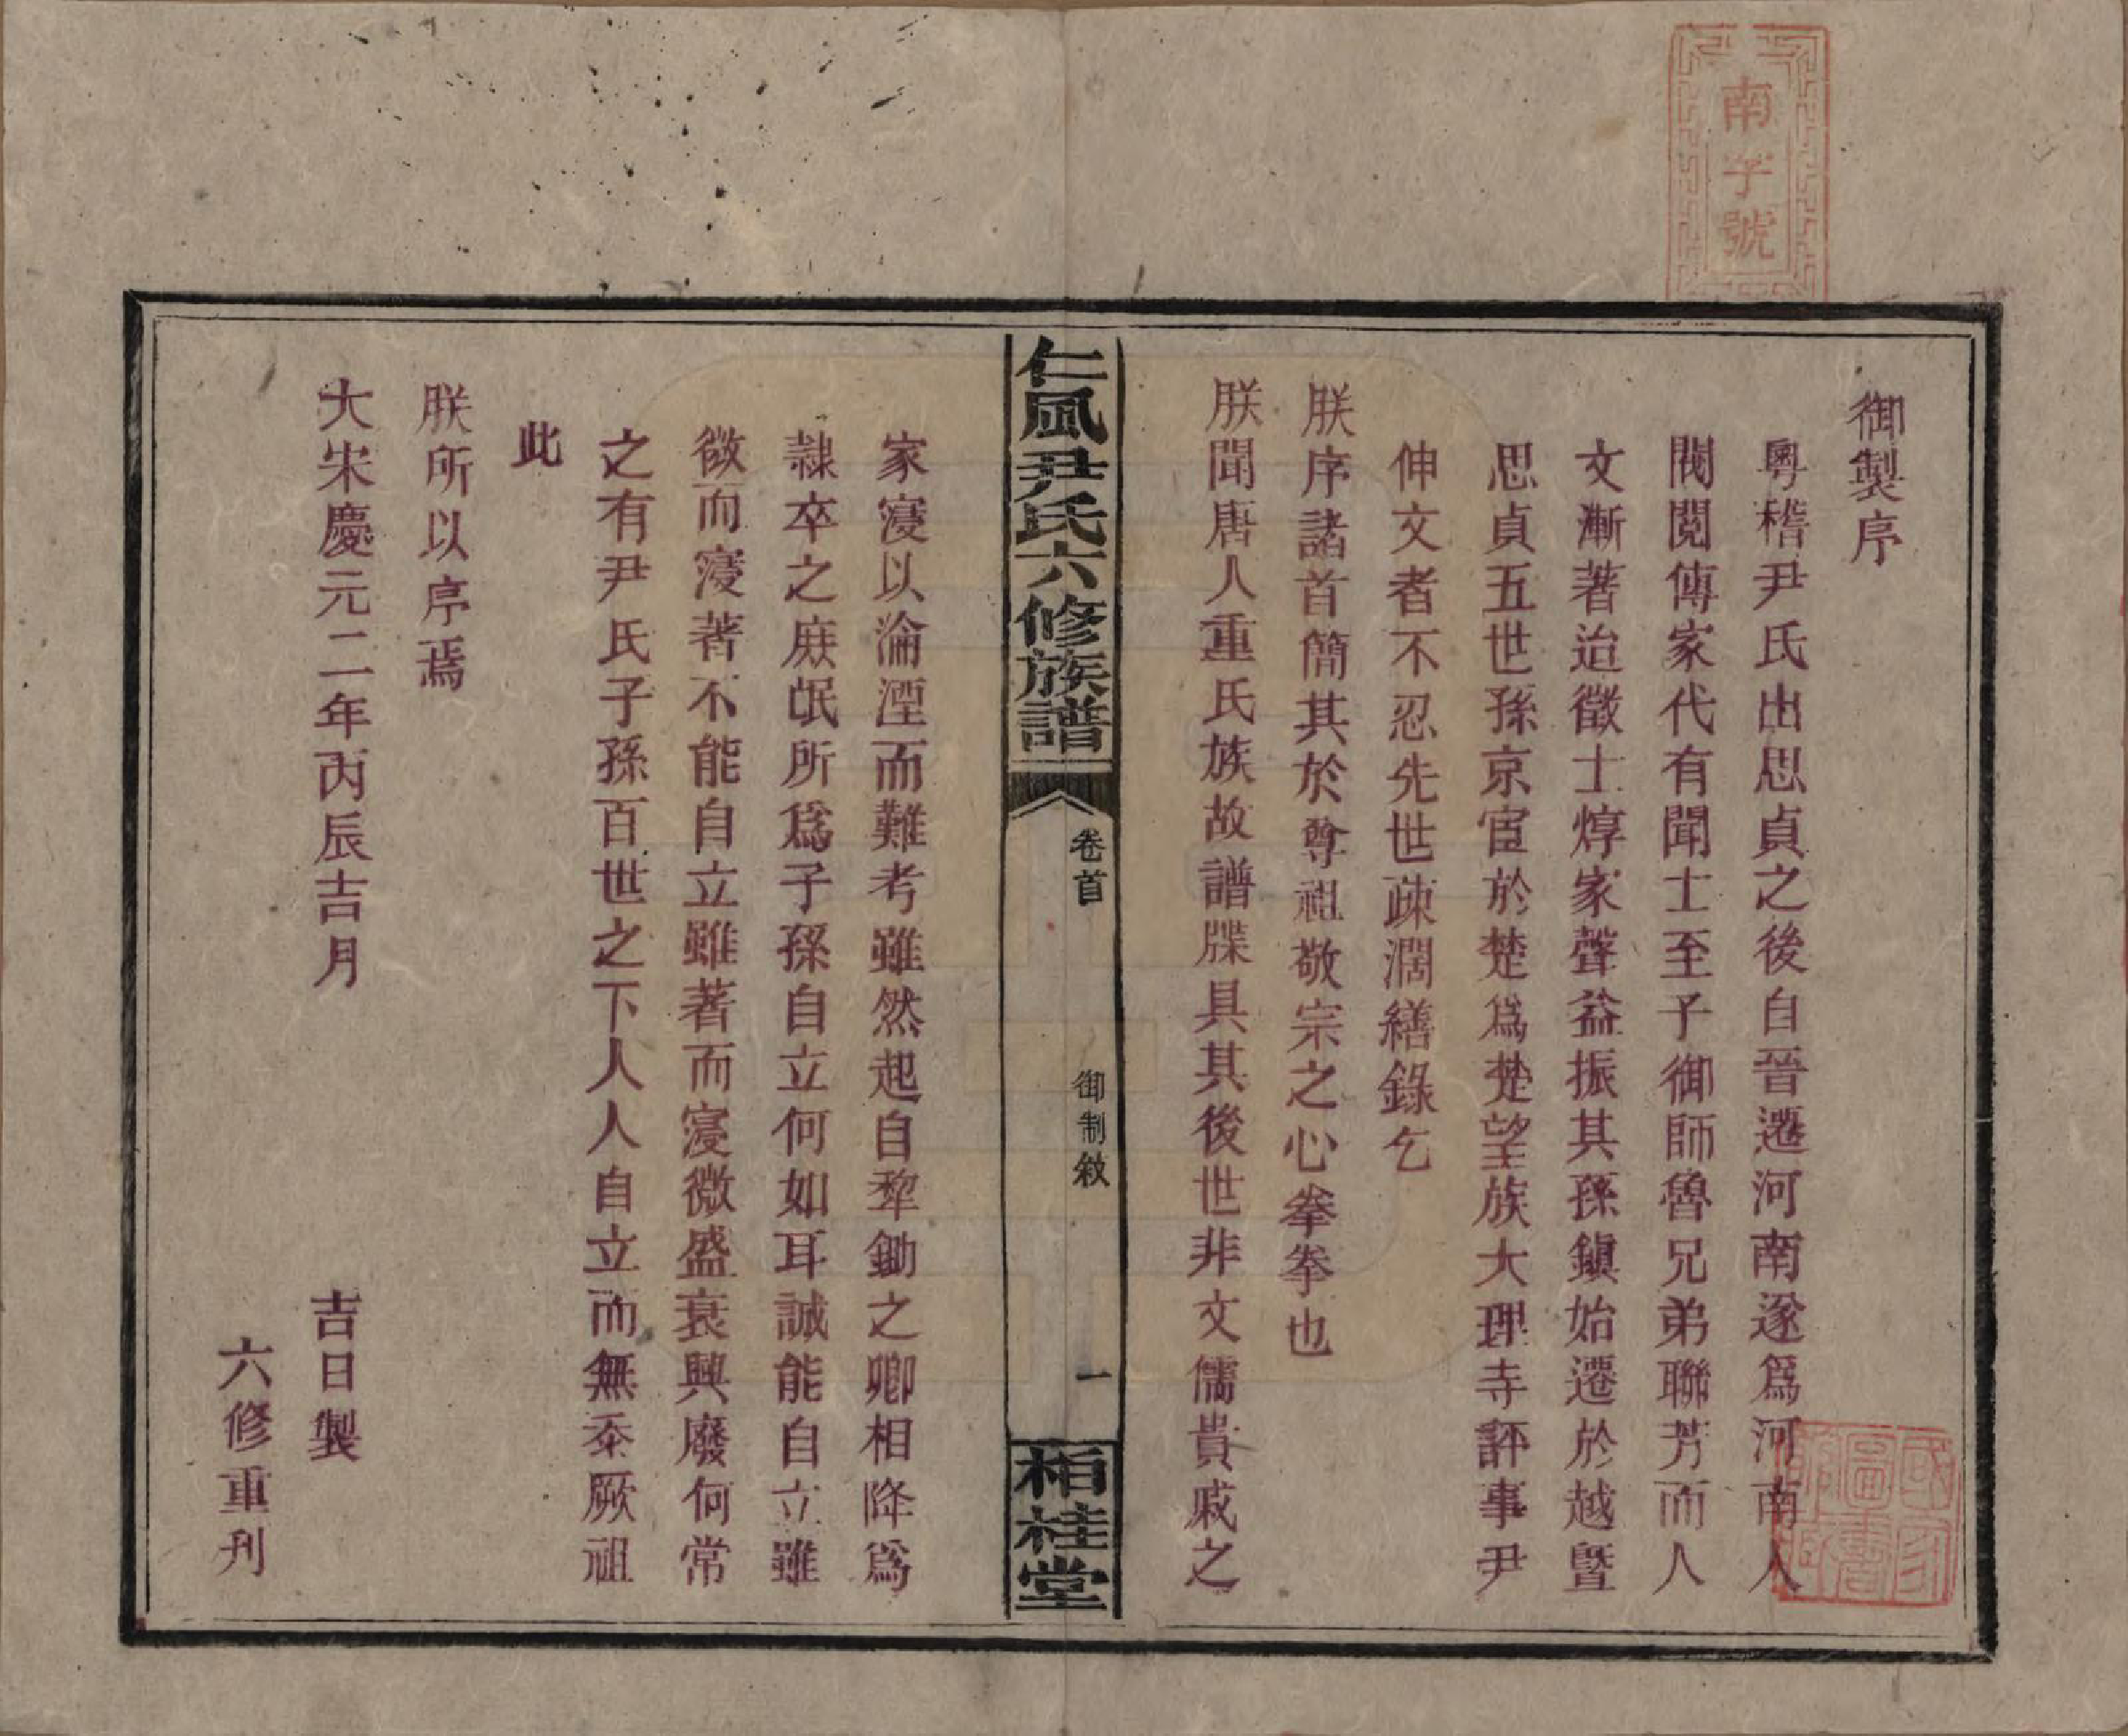 南字號
御製序
粵稽尹氏出思貞之後自晉遷河南遂爲河南人
閥閱傳家代有聞士至子御師魯兄弟聯芳而人
文漸著迨徵士焞家聲益振其孫鎮始遷於越暨
思貞五世孫京宦於楚爲楚望族大理寺評事尹
伸文者不忍先世疎濶繕錄乞
朕序諸首簡其於尊祖敬宗之心拳拳也
朕聞唐人重氏族故譜牒具其後世非文儒貴戚之
仁風尹氏六修族譜
卷首
御制敘
一
栢桂堂
家寖以淪湮而難考雖然起自犂鋤之卿相降爲
隸卒之庶氓所爲子孫自立何如耳誠能自立雖
微而寖著不能自立雖著而寖微盛衰興廢何常
之有尹氏子孫百世之下人人自立而無忝厥祖
此
朕所以序焉
大宋慶元二年丙辰吉月 吉日製
六修重刋